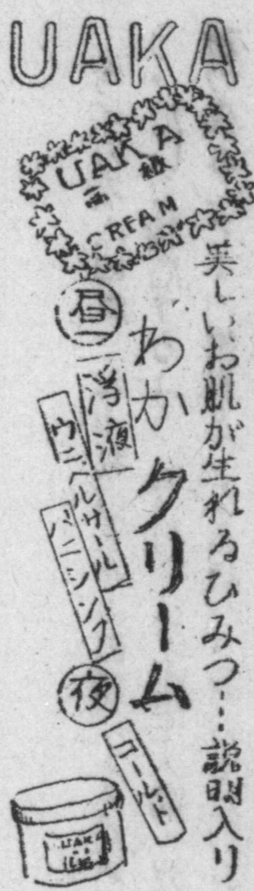 UAKA
UAKA
CREAM
美しいお肌が生れるひみつ…説明入り
わかクリーム
昼
浮液
ウニベルサール
バニシング
夜
コールド
UAKA